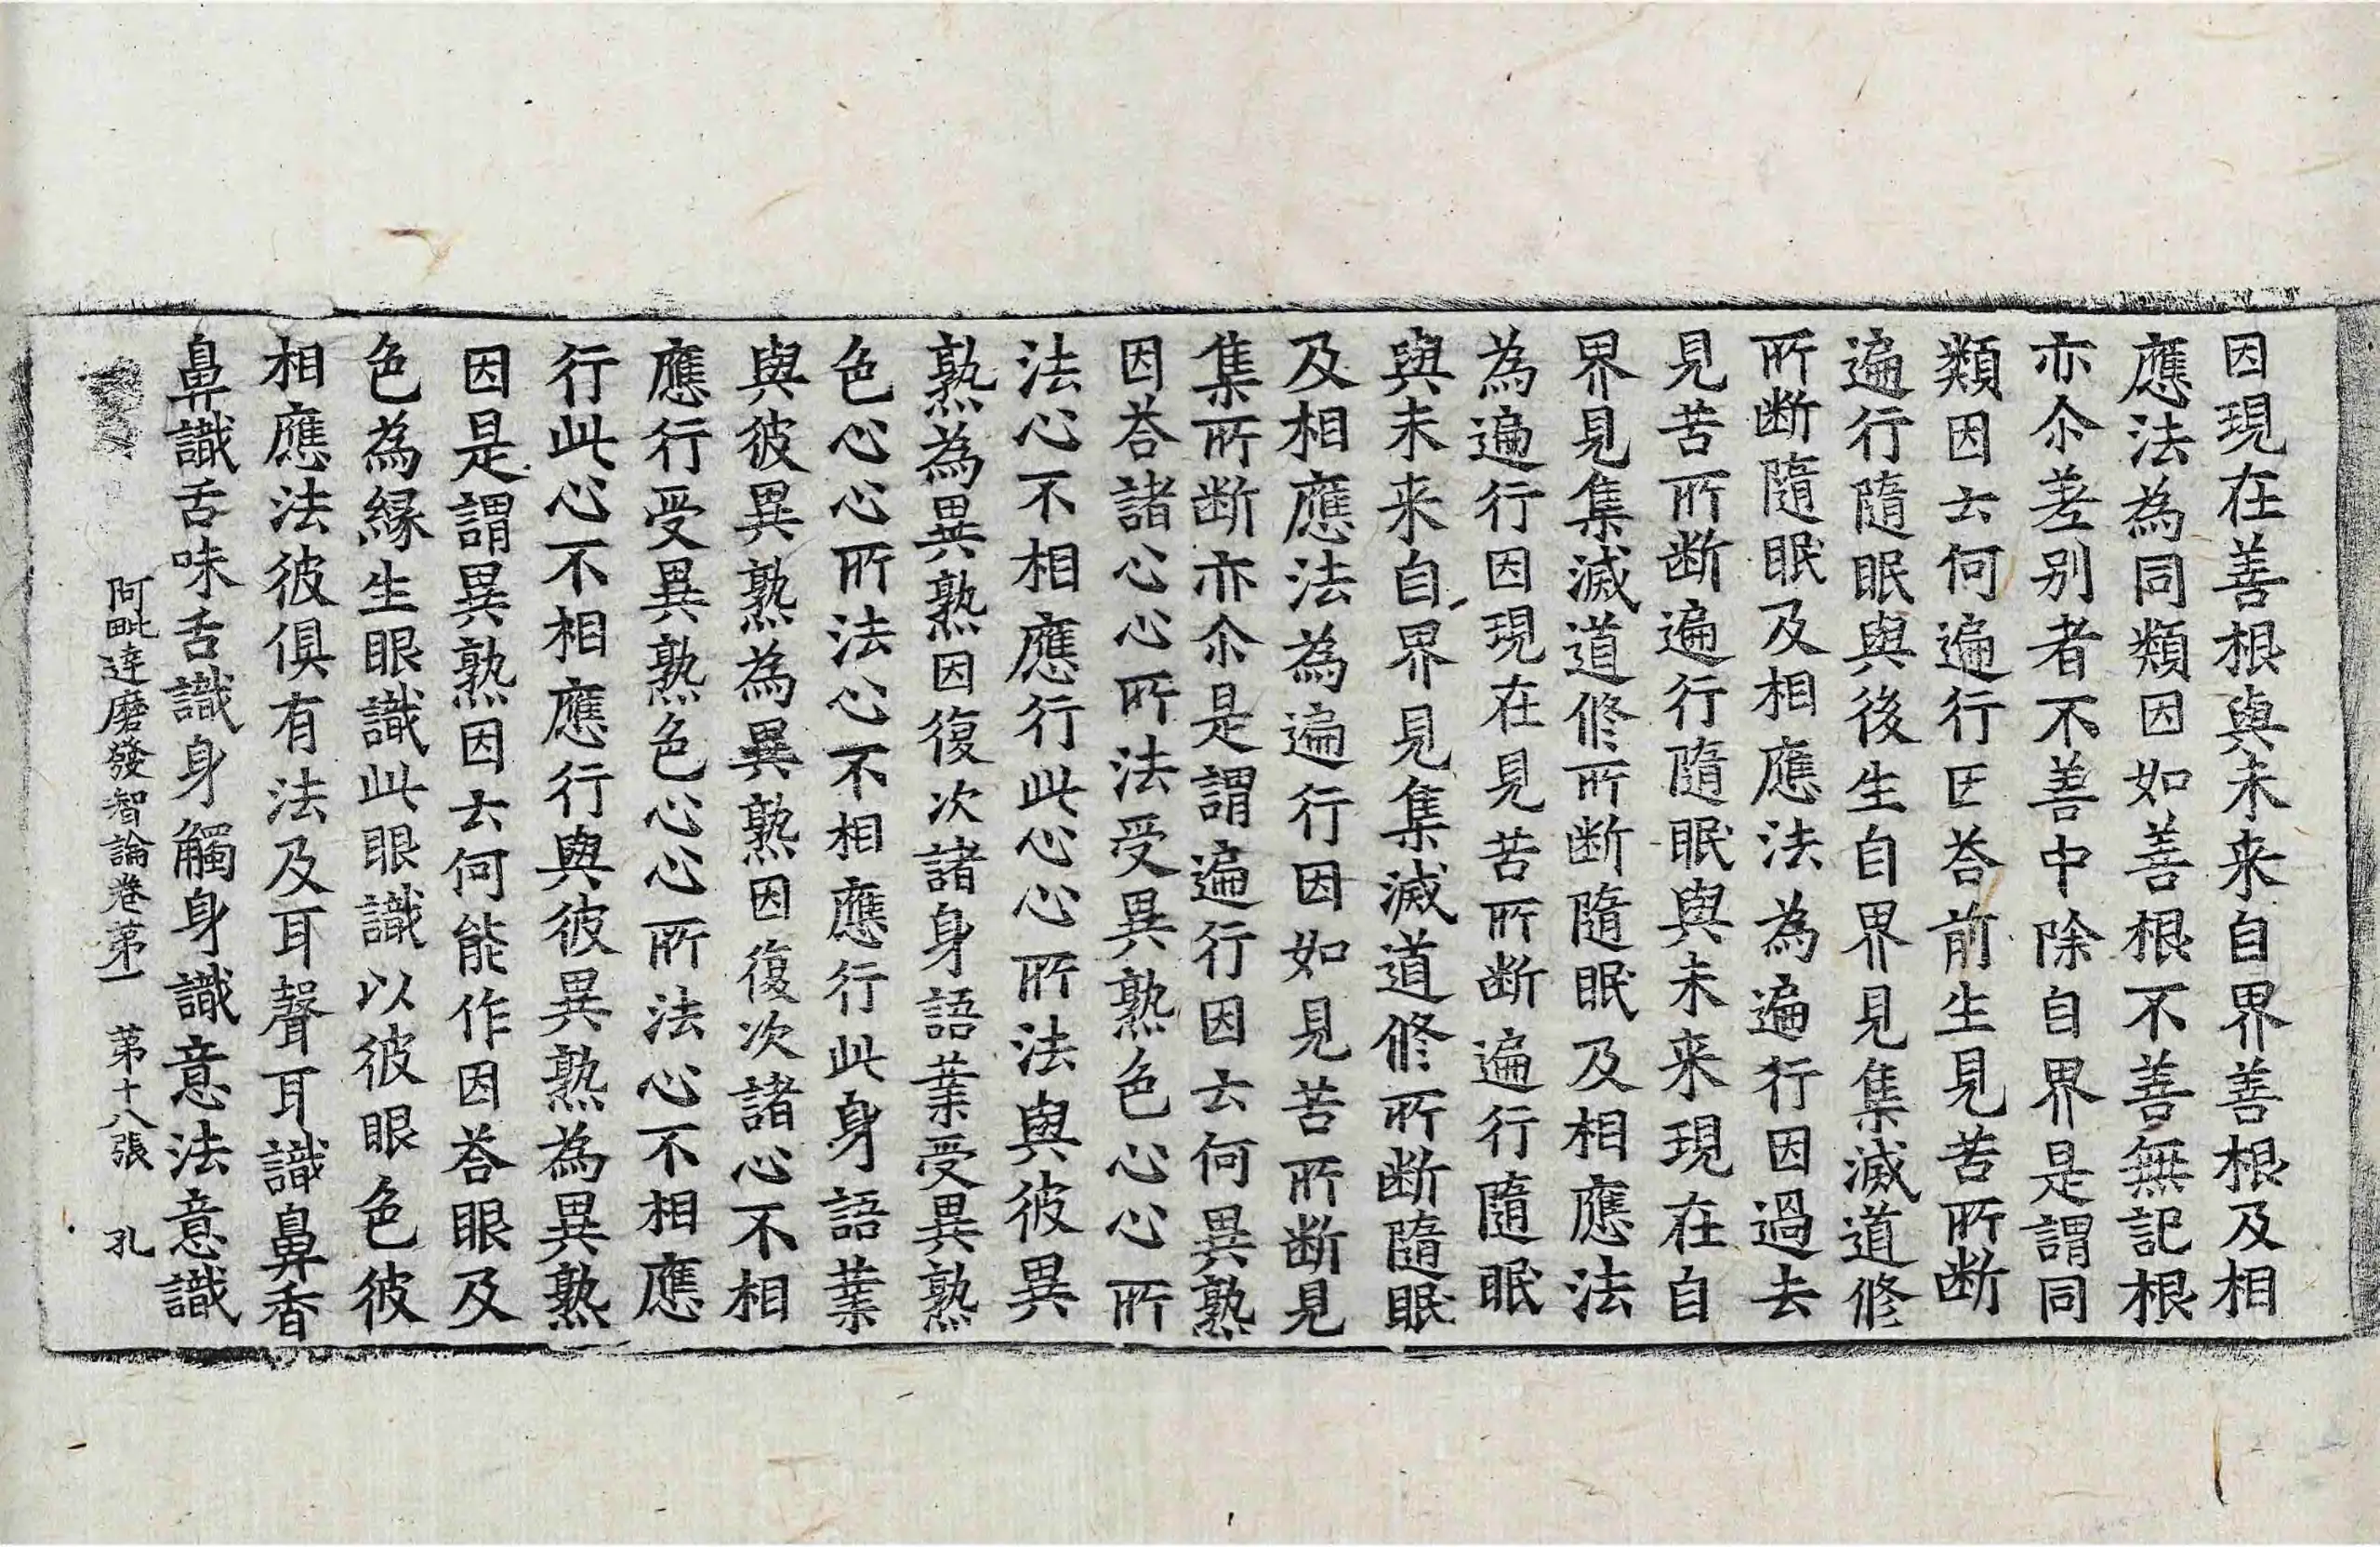 因現在善根與未来自界善根及相
應法為同類因如善根不善無記根
亦尒差别者不善中除自界是謂同
類因云何遍行因荅前生見苦所断
遍行隨眠與後生自界見集滅道修
所断隨眠及相應法為遍行因過去
見苦所断遍行隨眠與未来現在自
界見集滅道修所断隨眠及相應法
為遍行因現在見苦所断遍行隨眠
與未来自界見集滅道修所断隨眠
及相應法為遍行因如見苦所断見
集所断亦尒是謂遍行因云何異熟
因荅諸心心所法受異熟色心心所
法心不相應行此心心所法與彼異
熟為異熟因復次諸身語業受異熟
色心心所法心不相應行此身語業
與彼異熟為異熟因復次諸心不相
應行受異熟色心心所法心不相應
行此心不相應行與彼異熟為異熟
因是謂異熟因云何能作因荅眼及
色為緣生眼識此眼識以彼眼色彼
相應法彼俱有法及耳聲耳識鼻香
鼻識舌味舌識身觸身識意法意識
阿毗達磨發智論卷第一 第十八張 孔